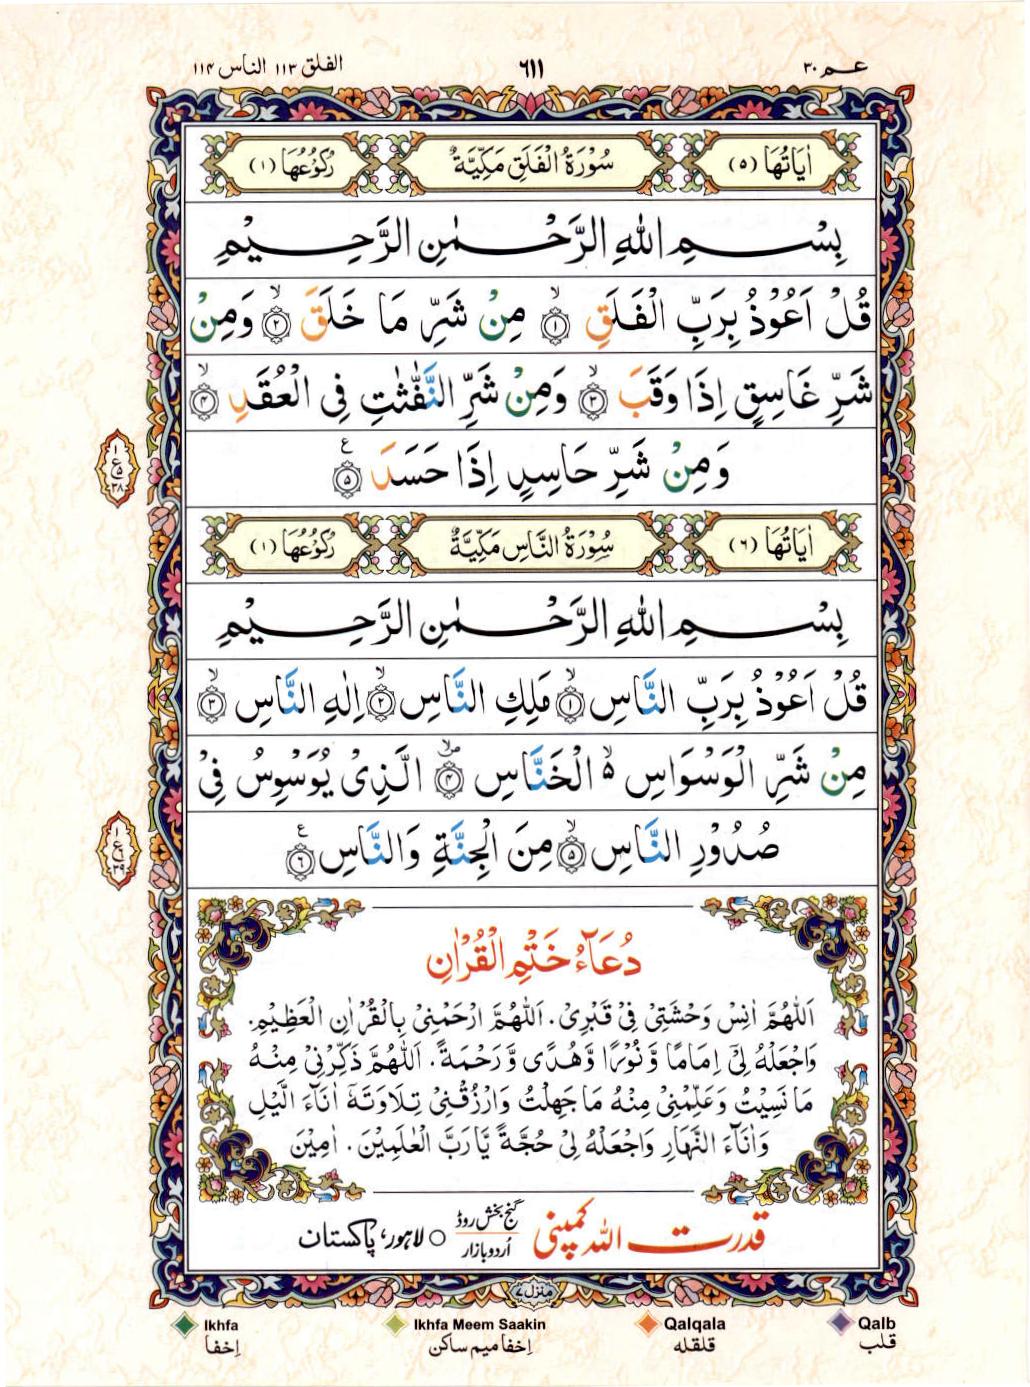 عـم ٣٠
٦١١
الفلق ١١٣ الناس ١١٤
اٰيَاتُهَا (٥)
سُوْرَةُ الْفَلَقِ مَكِّيَّةٌ
رُكُوْعُهَا (١)
بِسْمِ اللهِ الرَّحْمٰنِ الرَّحِيْمِ
قُلْ اَعُوْذُ بِرَبِّ الْفَلَقِ ۙ﴿١﴾ مِنْ شَرِّ مَا خَلَقَ ۙ﴿٢﴾ وَمِنْ
شَرِّ غَاسِقٍ اِذَا وَقَبَ ۙ﴿٣﴾ وَمِنْ شَرِّ النَّفّٰثٰتِ فِى الْعُقَدِ ۙ﴿۴﴾
وَمِنْ شَرِّ حَاسِدٍ اِذَا حَسَدَ ﴿٥﴾ ع
١
ع ٥
٣٨
اٰيَاتُهَا (٦)
سُوْرَةُ النَّاسِ مَكِّيَّةٌ
رُكُوْعُهَا (١)
بِسْمِ اللهِ الرَّحْمٰنِ الرَّحِيْمِ
قُلْ اَعُوْذُ بِرَبِّ النَّاسِ ۙ﴿١﴾ مَلِكِ النَّاسِ ۙ﴿٢﴾ اِلٰهِ النَّاسِ ۙ﴿٣﴾
مِنْ شَرِّ الْوَسْوَاسِ ۙ۵ الْخَنَّاسِ ﴿۴﴾ الَّذِىْ يُوَسْوِسُ فِىْ
صُدُوْرِ النَّاسِ ۙ﴿٥﴾ مِنَ الْجِنَّةِ وَالنَّاسِ ﴿٦﴾ ع
١
ع ٦
٣٩
دُعَآءُ خَتْمِ الْقُرْاٰنِ
اَللّٰهُمَّ اٰنِسْ وَحْشَتِىْ فِىْ قَبْرِىْ. اَللّٰهُمَّ ارْحَمْنِىْ بِالْقُرْاٰنِ الْعَظِيْمِ.
وَاجْعَلْهُ لِىْٓ اِمَامًا وَّ نُوْرًا وَّهُدًى وَّرَحْمَةً. اَللّٰهُمَّ ذَكِّرْنِىْ مِنْهُ
مَا نَسِيْتُ وَعَلِّمْنِىْ مِنْهُ مَا جَهِلْتُ وَارْزُقْنِىْ تِلَاوَتَهٗٓ اٰنَآءَ الَّيْلِ
وَاٰنَآءَ النَّهَارِ وَاجْعَلْهُ لِىْ حُجَّةً يَّا رَبَّ الْعٰلَمِيْنَ. اٰمِيْنَ
قدرت اللہ کمپنی
گنج بخش روڈ
اُردو بازار
لاہور، پاکستان
منزل ٧
Ikhfa
Ikhfa Meem Saakin
Qalqala
Qalb
اِخفا
اِخفا میم ساکن
قلقله
قلب